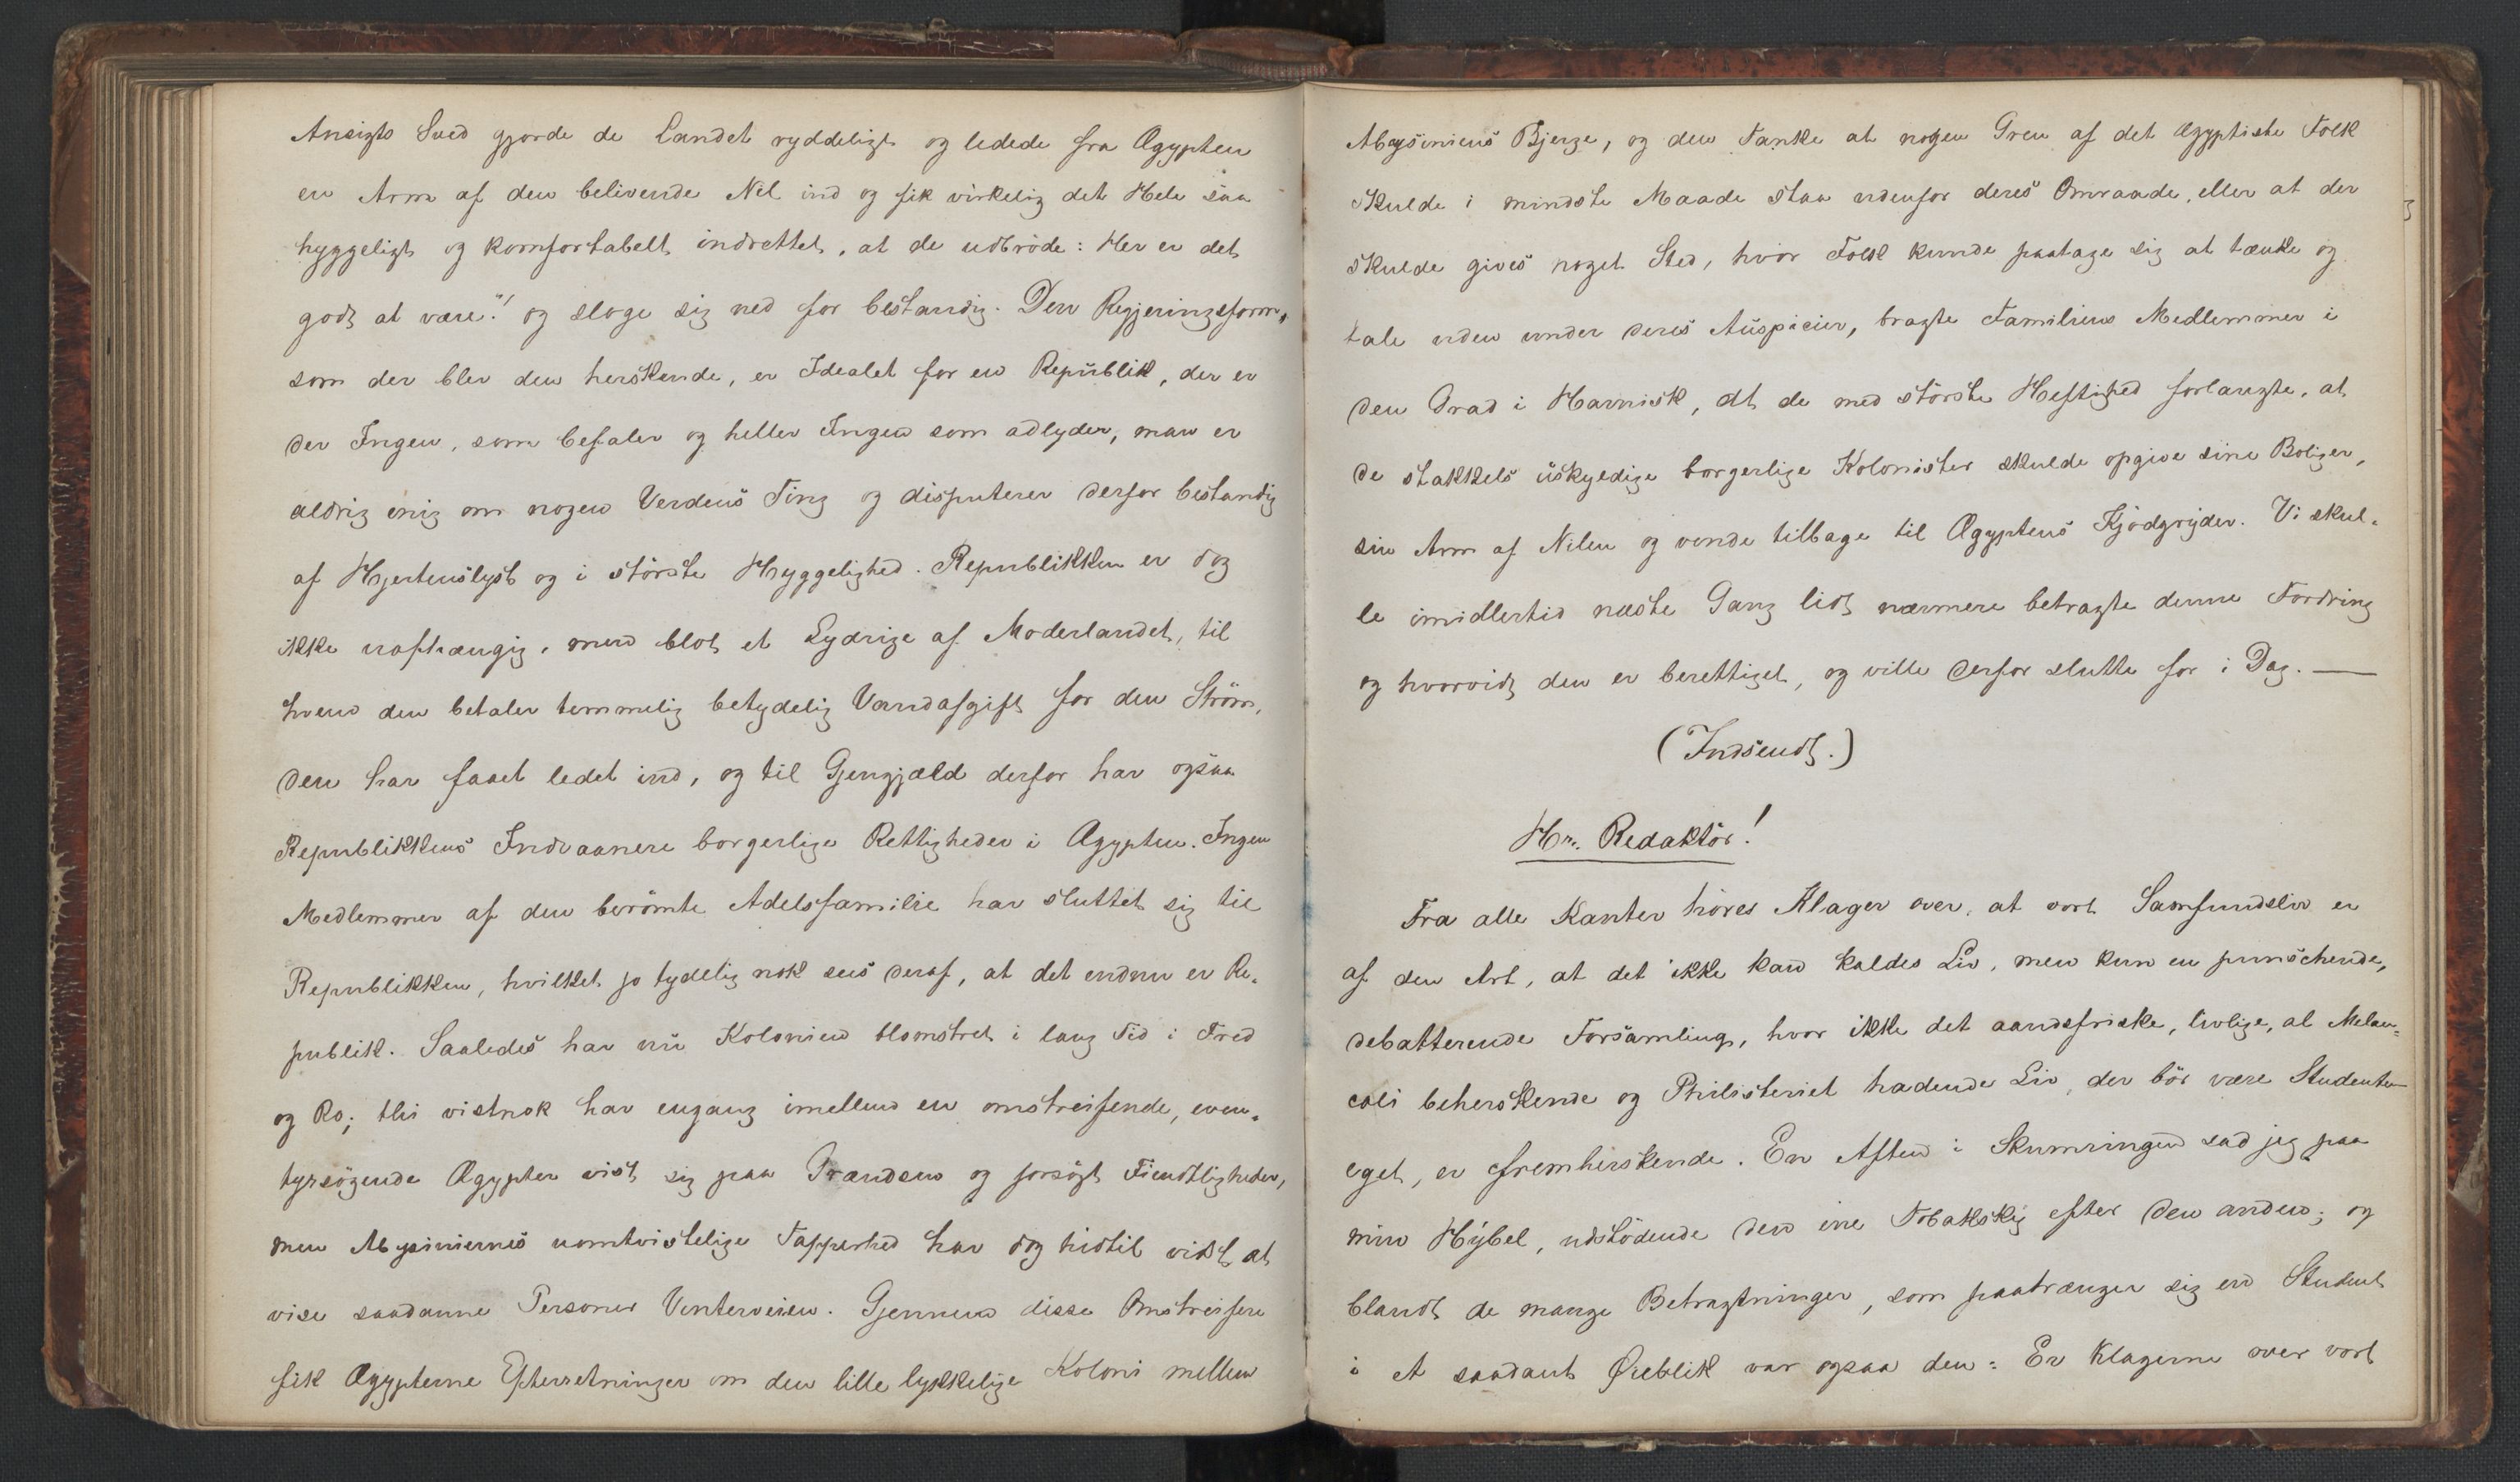 Ansigts Sved gjorde de Landet ryddeligt og ledede fra Ægypten
en Arm af den belivende Nil ind og fik virkelig det Hele saa
hyggeligt og komfortabelt indrettet, at de udbröde: Her er det
godt at være"! og sloge sig ned for bestandig. Den Regjeringsform,
som der blev den herskende, er Idealet for en Republik, der er
der Ingen, som befaler og heller Ingen som adlyder, man er
aldrig enig om nogen Verdens Ting og disputerer derfor bestandig
af Hjertenslyst og i störste Hyggelighed. Republikken er dog
ikke uafhængig, men blot et Lydrige af Moderlandet, til
hvem den betaler temmelig betydelig Vandafgift for den Ström,
den har faaet ledet ind, og til Gjengjæld derfor har ogsaa
Republikkens Indvaanere borgerlige Rettigheder i Ægypten. Ingen
Medlemmer af den berömte Adelsfamilie har sluttet sig til
Republikken, hvilket jo tydelig nok sees deraf, at det endnu er Re-
publik. Saaledes har nu Kolonien blomstret i lang Tid i Fred
og Ro; thi vistnok har engang imellem en omstreifende, even-
tyrsögende Ægypter vist sig paa Grændsen og forsögt Fiendtligheder,
men Abysiniernes uomtvistelige Tapperhed har dog hidtil vidst at
vise saadanne Personer Vinterveien. Gjennem disse Omstreifere
fik Ægypterne Efterretninger om den lille lykkelige Koloni mellem
Abysiniens Bjerge, og den Tanke at nogen Gren af det ægyptiske Folk
skulde i mindste Maade staa udenfor deres Omraade, eller at der
skulde gives noget Sted, hvor Folk kunde paatage sig at tænke og
tale uden under deres Auspicier, bragte Familiens Medlemmer i
den Grad i Harnisk, at de med störste Heftighed forlangte, at
de stakkels uskyldige borgerlige Kolonister skulde opgive sine Boliger,
sin Arm af Nilen og vende tilbage til Ægyptens Kjödgryder. Vi skul-
le imidlertid næste Gang lidt nærmere betragte denne Fordring
og hvorvidt den er berettiget, og ville derfor slutte for i Dag. —
(Indsendt.)
Hr. Redaktör!
Fra alle Kanter höres Klager over, at vort Samfundsliv er
af den Art, at det ikke kan kaldes Liv, men kun en punschende,
debatterende Forsamling, hvor ikke det aandsfriske, livlige, al Melan-
coli beherskende og Philisteriet hadende Liv, der bör være Studenten
eget, er fremherskende. En Aften i Skumringen sad jeg paa
min Hybel, udstödende den ene Tobakssky efter den anden; og
blandt de mange Betragtninger, som paatrænger sig en Student
i et saadant Øieblik var ogsaa den: Er Klagerne over vort